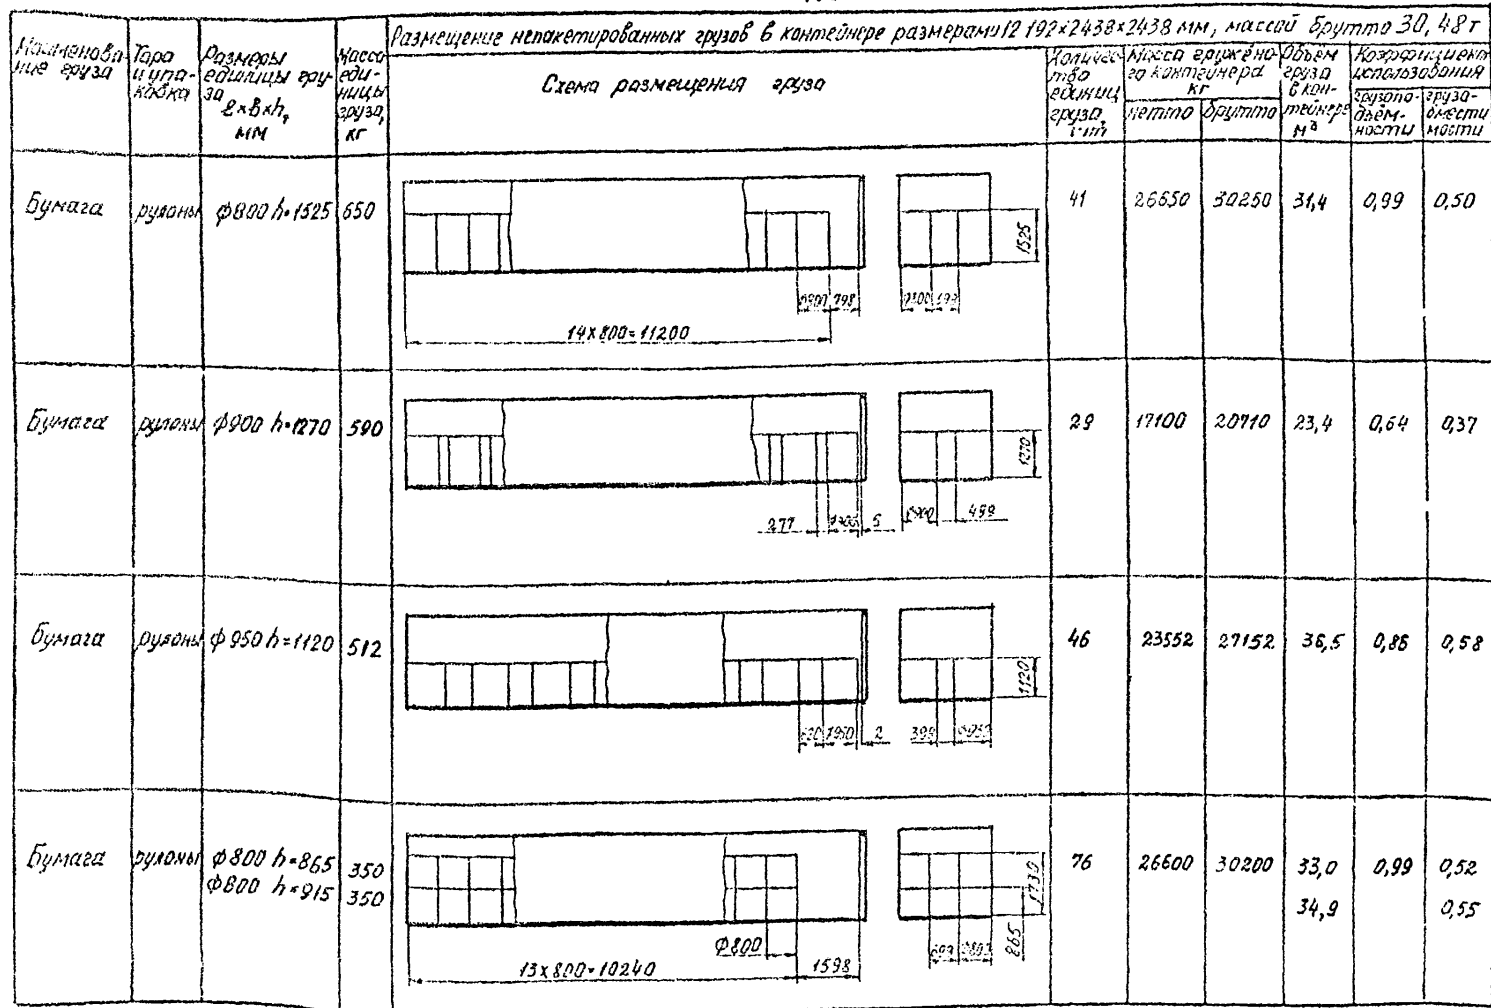 Размещение непакетированных грузов в контейнере размерами 12 192×2438×2438 мм, массой брутто 30,48т
Наименова-
ние груза
Тара
и упа-
ковка
Размеры
единицы гру-
за
ℓ×b×h,
мм
Масса
еди-
ницы
груза,
кг
Схема размещения груза
Количес-
тво
единиц
груза,
шт
Масса гружёно-
го контейнера
кг
нетто
брутто
Объём
груза
в кон-
тейнере
м³
Коэффициент
использования
грузопо-
дъём-
ности
грузо-
вмести
мости
Бумага рулоны ф800 h=1525 650
1525
ф800 798
ф800
14×800=11200
41 26650 30250 31,4 0,99 0,50
Бумага рулоны ф900 h=1270 590
1270
277 5
499
29 17100 20710 23,4 0,64 0,37
Бумага рулоны ф950 h=1120 512
1120
2
46 23552 27152 36,5 0,86 0,58
Бумага рулоны ф800 h=865 350
ф800 h=915 350
1730
865
ф800
13×800=10240 1598
76 26600 30200 33,0 0,99 0,52
34,9 0,55